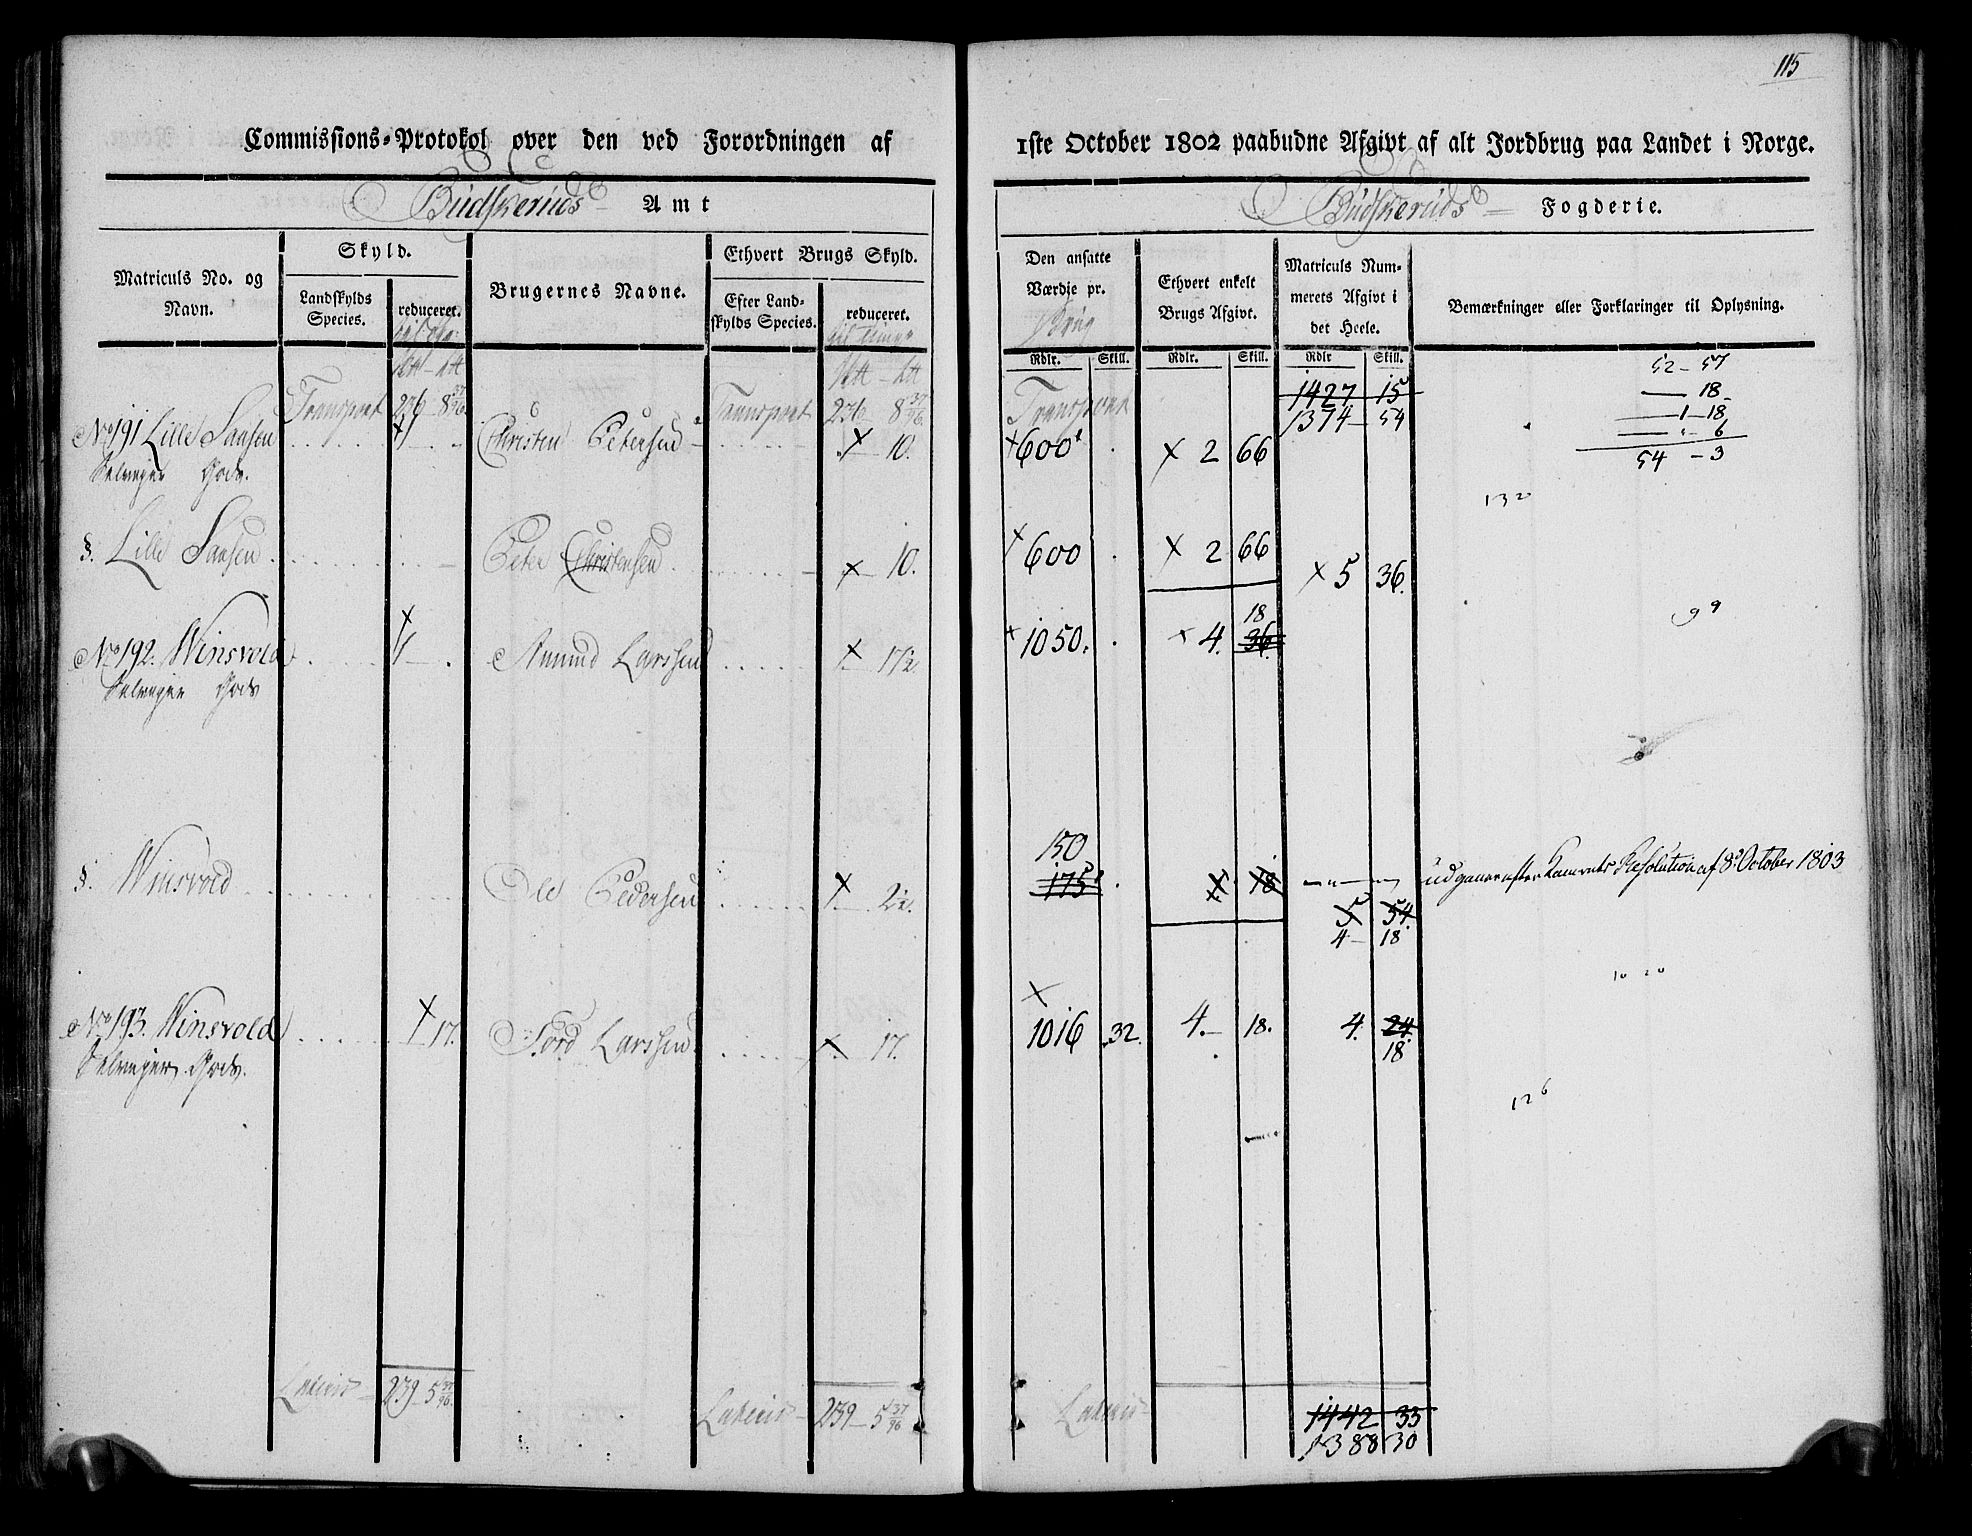 115
Commissions-Protokol over den ved Forordningen af
1ste October 1802 paabudne Afgivt af alt Jordbrug paa Landet i Norge.
Budskeruds Amt
Budskeruds Fogderie.
Matriculs No. og Navn.
Skyld.
Landskylds Species.
reduceret.
Brugernes Navne.
Ethvert Brugs Skyld.
Efter Landskylds Species.
reduceret.
Den ansatte Værdie pr. Brug
Ethvert enkelt Brugs Afgivt.
Matriculs Nummerets Afgivt i det Heele.
Bemærkninger eller Forklaringer til Oplysning.
Rdlr. Skill. Rdlr. Skill. Rdlr Skill.
Transport 236 8 37/96 Transport 236 8 37/96 Transport 1427 15
1374 54
52 - 57
18
1 - 18
6
54 - 3
No 191 Lille Saasen 1 Christen Petersen 10. 600 2 66
Selveyer Gods.
132
§. Lille Saasen Peter Christensen 10. 600 2 66 5 36.
No 192. Winsvold 1 Amund Larssen 1 17½ 1050. 4. 36. 18
Selveyer Gods
99
§. Winsvold Ole Pedersen 2½. 175 150 1. 18 udgaaer efter Kamrets Resolution af 8de October 1803
5 54.
4 - 18
10 20
No 193. Winsvold 1 17. Tord Larssen 1. 17. 1016 32. 4. 18. 4. 24. 18
Selveyer Gods.
126
Lateris 239 5 37/96 Lateris 239 5 37/96 Lateris 1442 33
1388 30